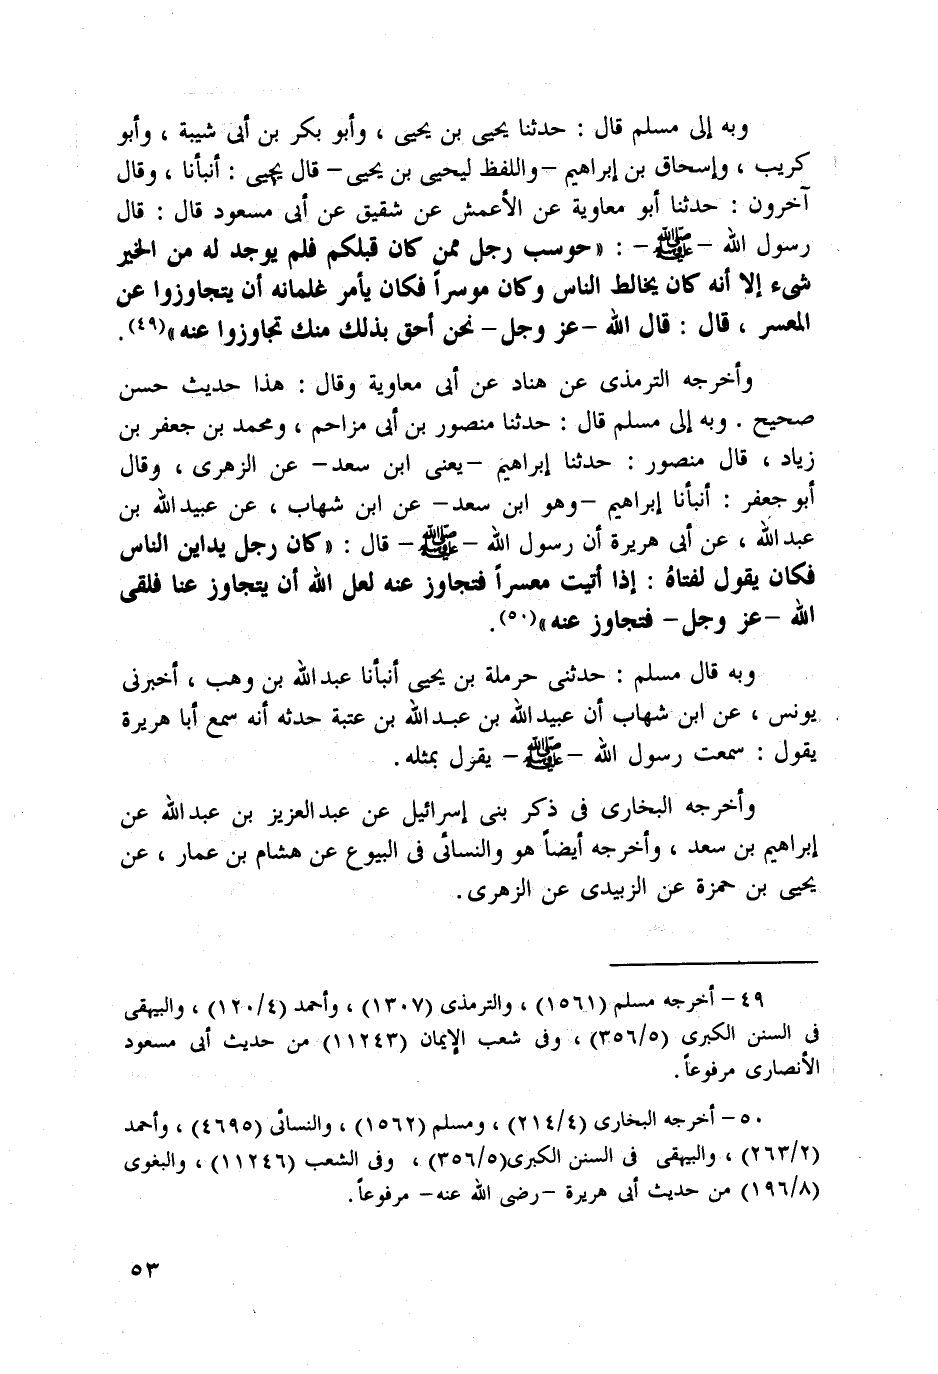 وبه إلى مسلم قال : حدثنا يحيى بن يحيى ، وأبو بكر بن أبى شيبة ، وأبو
كريب ، وإسحاق بن إبراهيم –واللفظ ليحيى بن يحيى– قال يحيى : أنبأنا ، وقال
آخرون : حدثنا أبو معاوية عن الأعمش عن شقيق عن أبى مسعود قال : قال
رسول الله –ﷺ– : «حوسب رجل ممن كان قبلكم فلم يوجد له من الخير
شىء إلا أنه كان يخالط الناس وكان موسراً فكان يأمر غلمانه أن يتجاوزوا عن
المعسر ، قال : قال الله –عز وجل– نحن أحق بذلك منك تجاوزوا عنه»(٤٩).
وأخرجه الترمذى عن هناد عن أبى معاوية وقال : هذا حديث حسن
صحيح . وبه إلى مسلم قال : حدثنا منصور بن أبى مزاحم ، ومحمد بن جعفر بن
زياد ، قال منصور : حدثنا إبراهيم –يعنى ابن سعد– عن الزهرى ، وقال
أبو جعفر : أنبأنا إبراهيم –وهو ابن سعد– عن ابن شهاب ، عن عبيدالله بن
عبدالله ، عن أبى هريرة أن رسول الله –ﷺ– قال : «كان رجل يداين الناس
فكان يقول لفتاهُ : إذا أتيت معسراً فتجاوز عنه لعل الله أن يتجاوز عنا فلقى
الله –عز وجل– فتجاوز عنه»(٥٠).
وبه قال مسلم : حدثنى حرملة بن يحيى أنبأنا عبدالله بن وهب ، أخبرنى
يونس ، عن ابن شهاب أن عبيدالله بن عبدالله بن عتبة حدثه أنه سمع أبا هريرة
يقول : سمعت رسول الله –ﷺ– يقول بمثله.
وأخرجه البخارى فى ذكر بنى إسرائيل عن عبدالعزيز بن عبدالله عن
إبراهيم بن سعد ، وأخرجه أيضاً هو والنسائى فى البيوع عن هشام بن عمار ، عن
يحيى بن حمزة عن الزبيدى عن الزهرى.
٤٩– أخرجه مسلم (١٥٦١) ، والترمذى (١٣٠٧) ، وأحمد (١٢٠/٤) ، والبيهقى
فى السنن الكبرى (٣٥٦/٥) ، وفى شعب الإيمان (١١٢٤٣) من حديث أبى مسعود
الأنصارى مرفوعاً.
٥٠– أخرجه البخارى (٢١٤/٤) ، ومسلم (١٥٦٢) ، والنسائى (٤٦٩٥) ، وأحمد
(٢٦٣/٢) ، والبيهقى فى السنن الكبرى(٣٥٦/٥) ، وفى الشعب (١١٢٤٦) ، والبغوى
(١٩٦/٨) من حديث أبى هريرة –رضى الله عنه– مرفوعاً.
٥٣